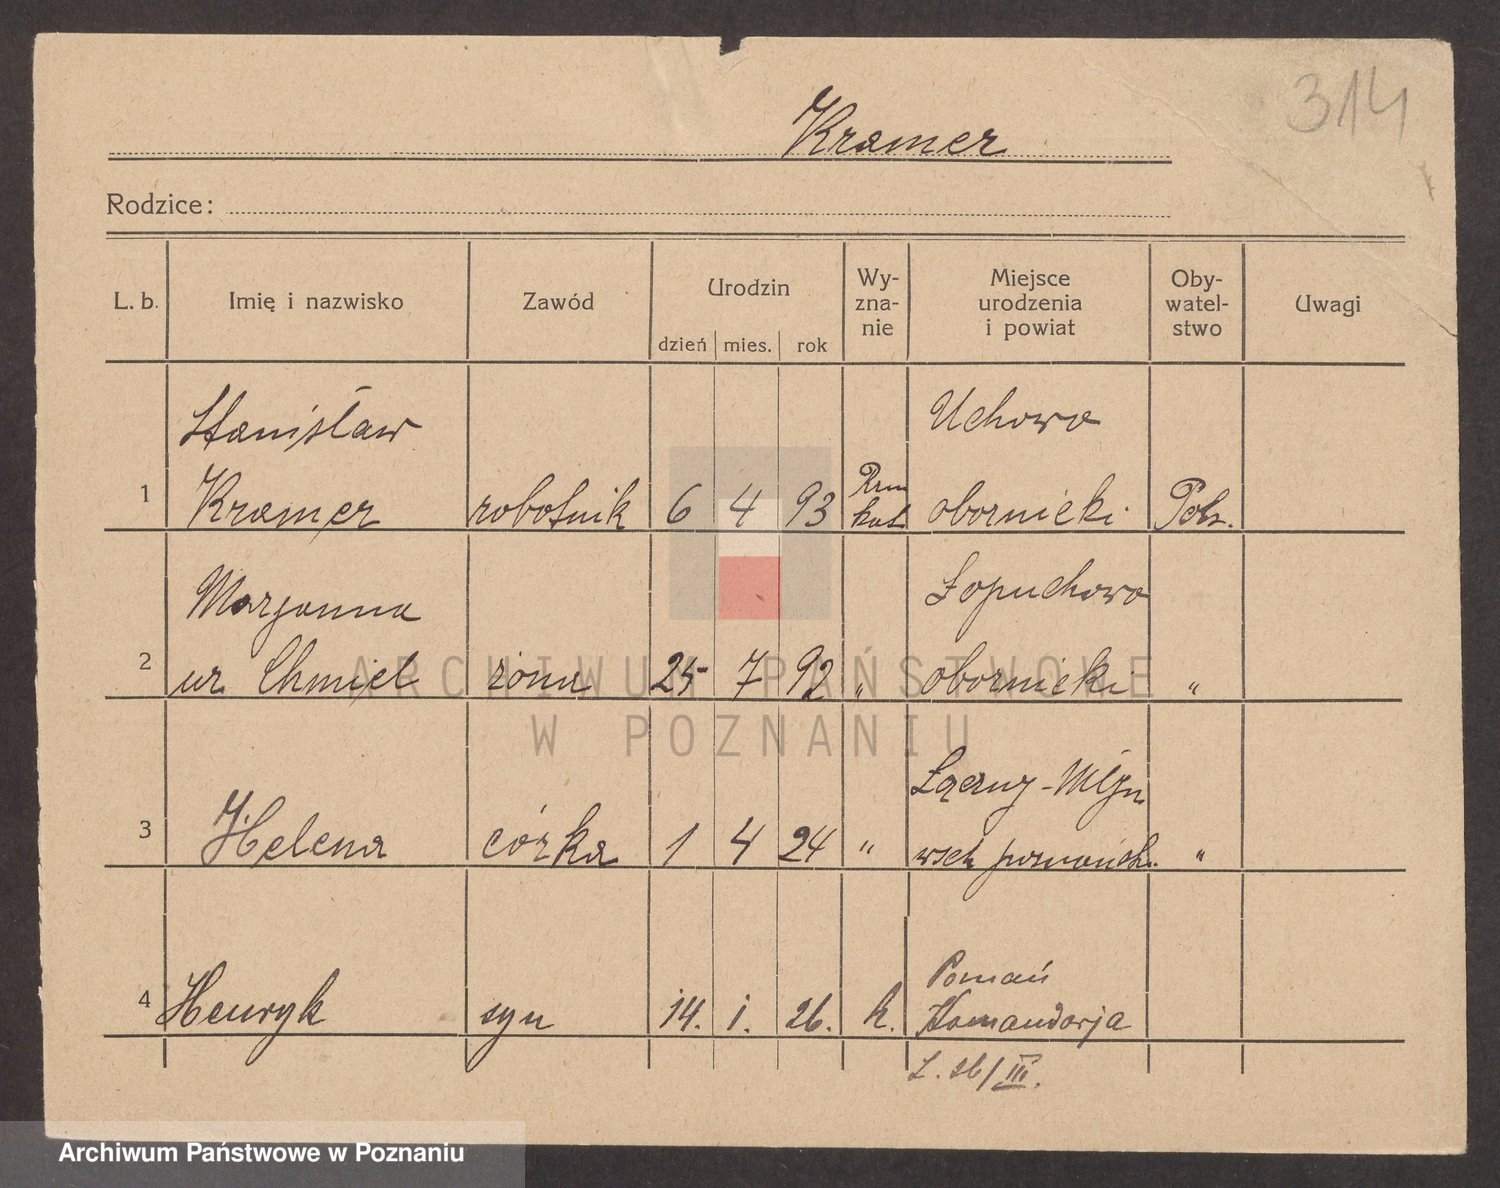 314
Kramer
Rodzice:
L. b.
Imię i nazwisko
Zawód
Urodzin
dzień mies. rok
Wy-
zna-
nie
Miejsce
urodzenia
i powiat
Oby-
watel-
stwo
Uwagi
Stanisław Uchowo
1 Kramer robotnik 6 4 93 Rzm kat obornicki Pols.
Marjanna Łopuchowo
2 ur. Chmiel żona 25 7 92 " obornicki "
Łączny-Młyn
3 Helena córka 1 4 24 " wsch. "
Poznań
4 Henryk syn 14. 1. 26. k. Komandorja
L. 26/III.
ARCHIWUM PAŃSTWOWE
W POZNANIU
Archiwum Państwowe w Poznaniu